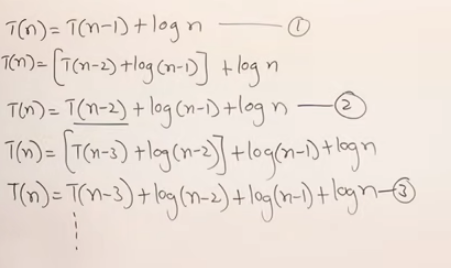 T(n) = T(n-1) + log n —— ①
T(n) = [T(n-2) + log(n-1)] + log n
T(n) = T(n-2) + log(n-1) + log n — ②
T(n) = [T(n-3) + log(n-2)] + log(n-1) + log n
T(n) = T(n-3) + log(n-2) + log(n-1) + log n — ③